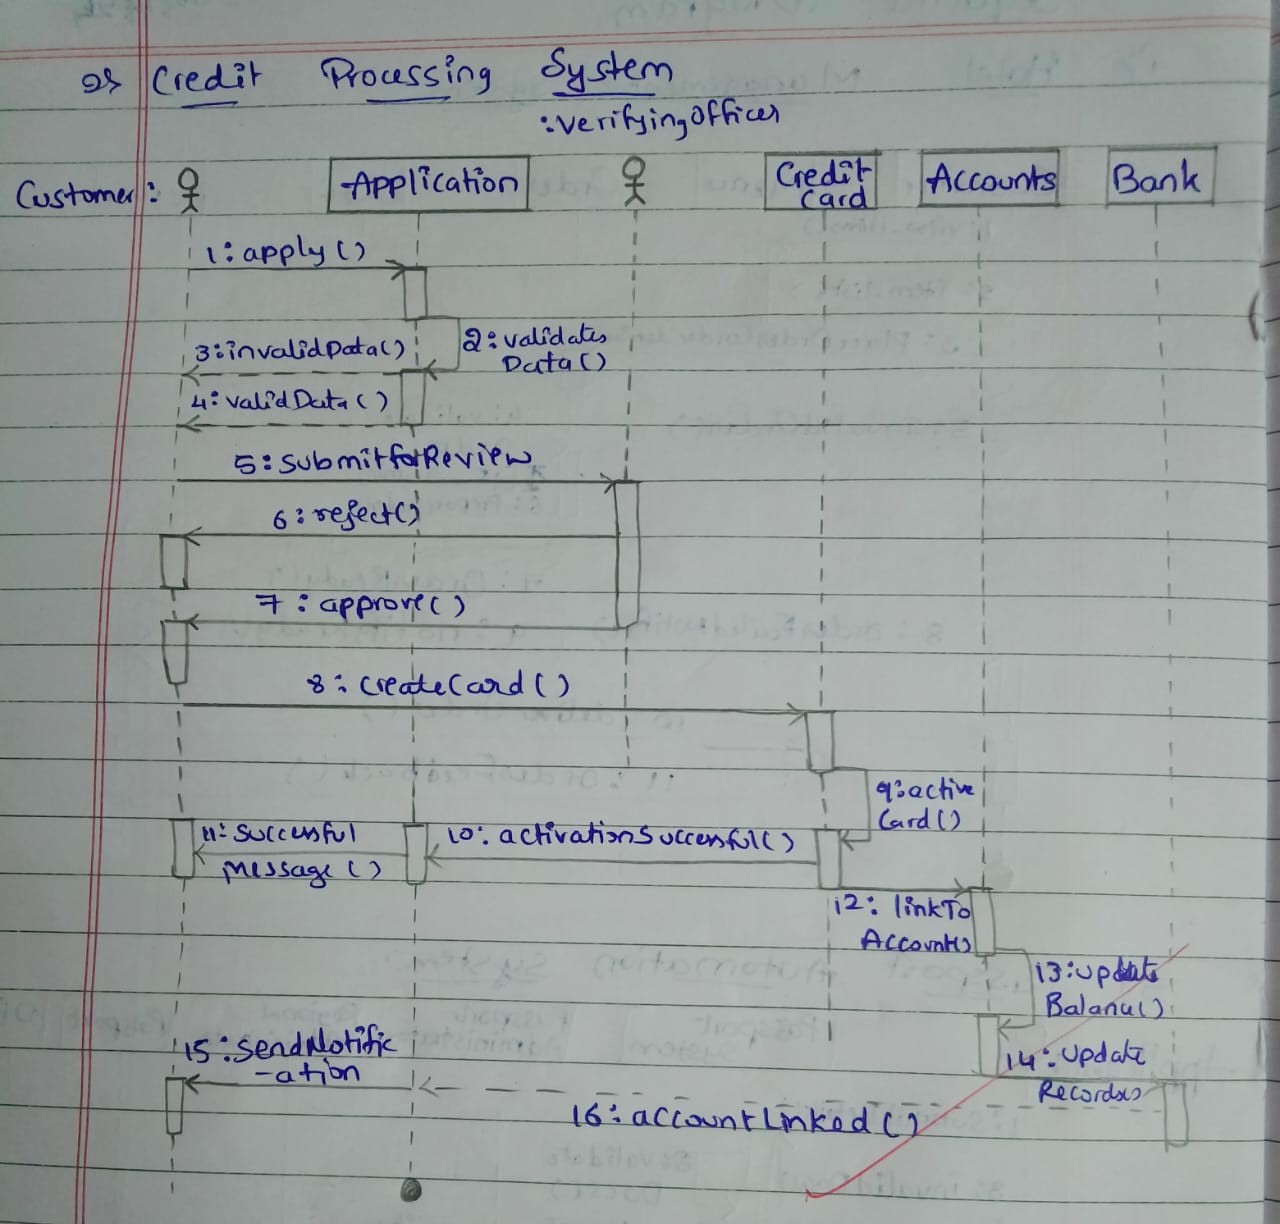 2) Credit Processing System
:VerifyingOfficer
Customer:
Application
Credit
Card
Accounts
Bank
1:apply()
2:validates
Data()
3:invalidData()
4:validData()
5:submitforReview
6:reject()
7:approve()
8:createCard()
9:active
Card()
10:activationSuccessful()
11:Successful
message()
12:linkTo
Account()
13:update
Balance()
14:Update
Records()
15:sendNotific
-ation
16:accountLinked()